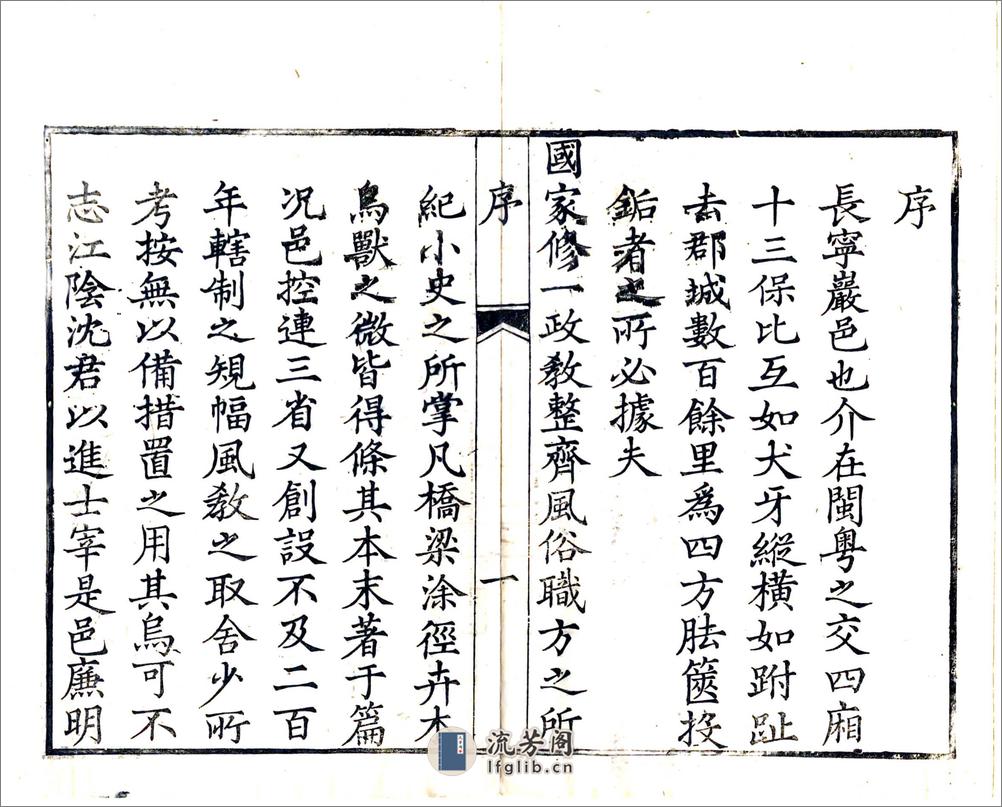 序
長寧巖邑也介在閩粤之交四廂
十三保比互如犬牙縱横如跗趾
去郡城數百餘里爲四方胠篋投
缿者之所必據夫
國家修一政教整齊風俗職方之所
序
一
紀小史之所掌凡橋梁涂徑卉木
鳥獸之微皆得條其本末著于篇
况邑控連三省又創設不及二百
年轄制之規幅風教之取舍少所
考按無以備措置之用其烏可不
志江陰沈君以進士宰是邑廉明
流芳阁
lfglib.cn